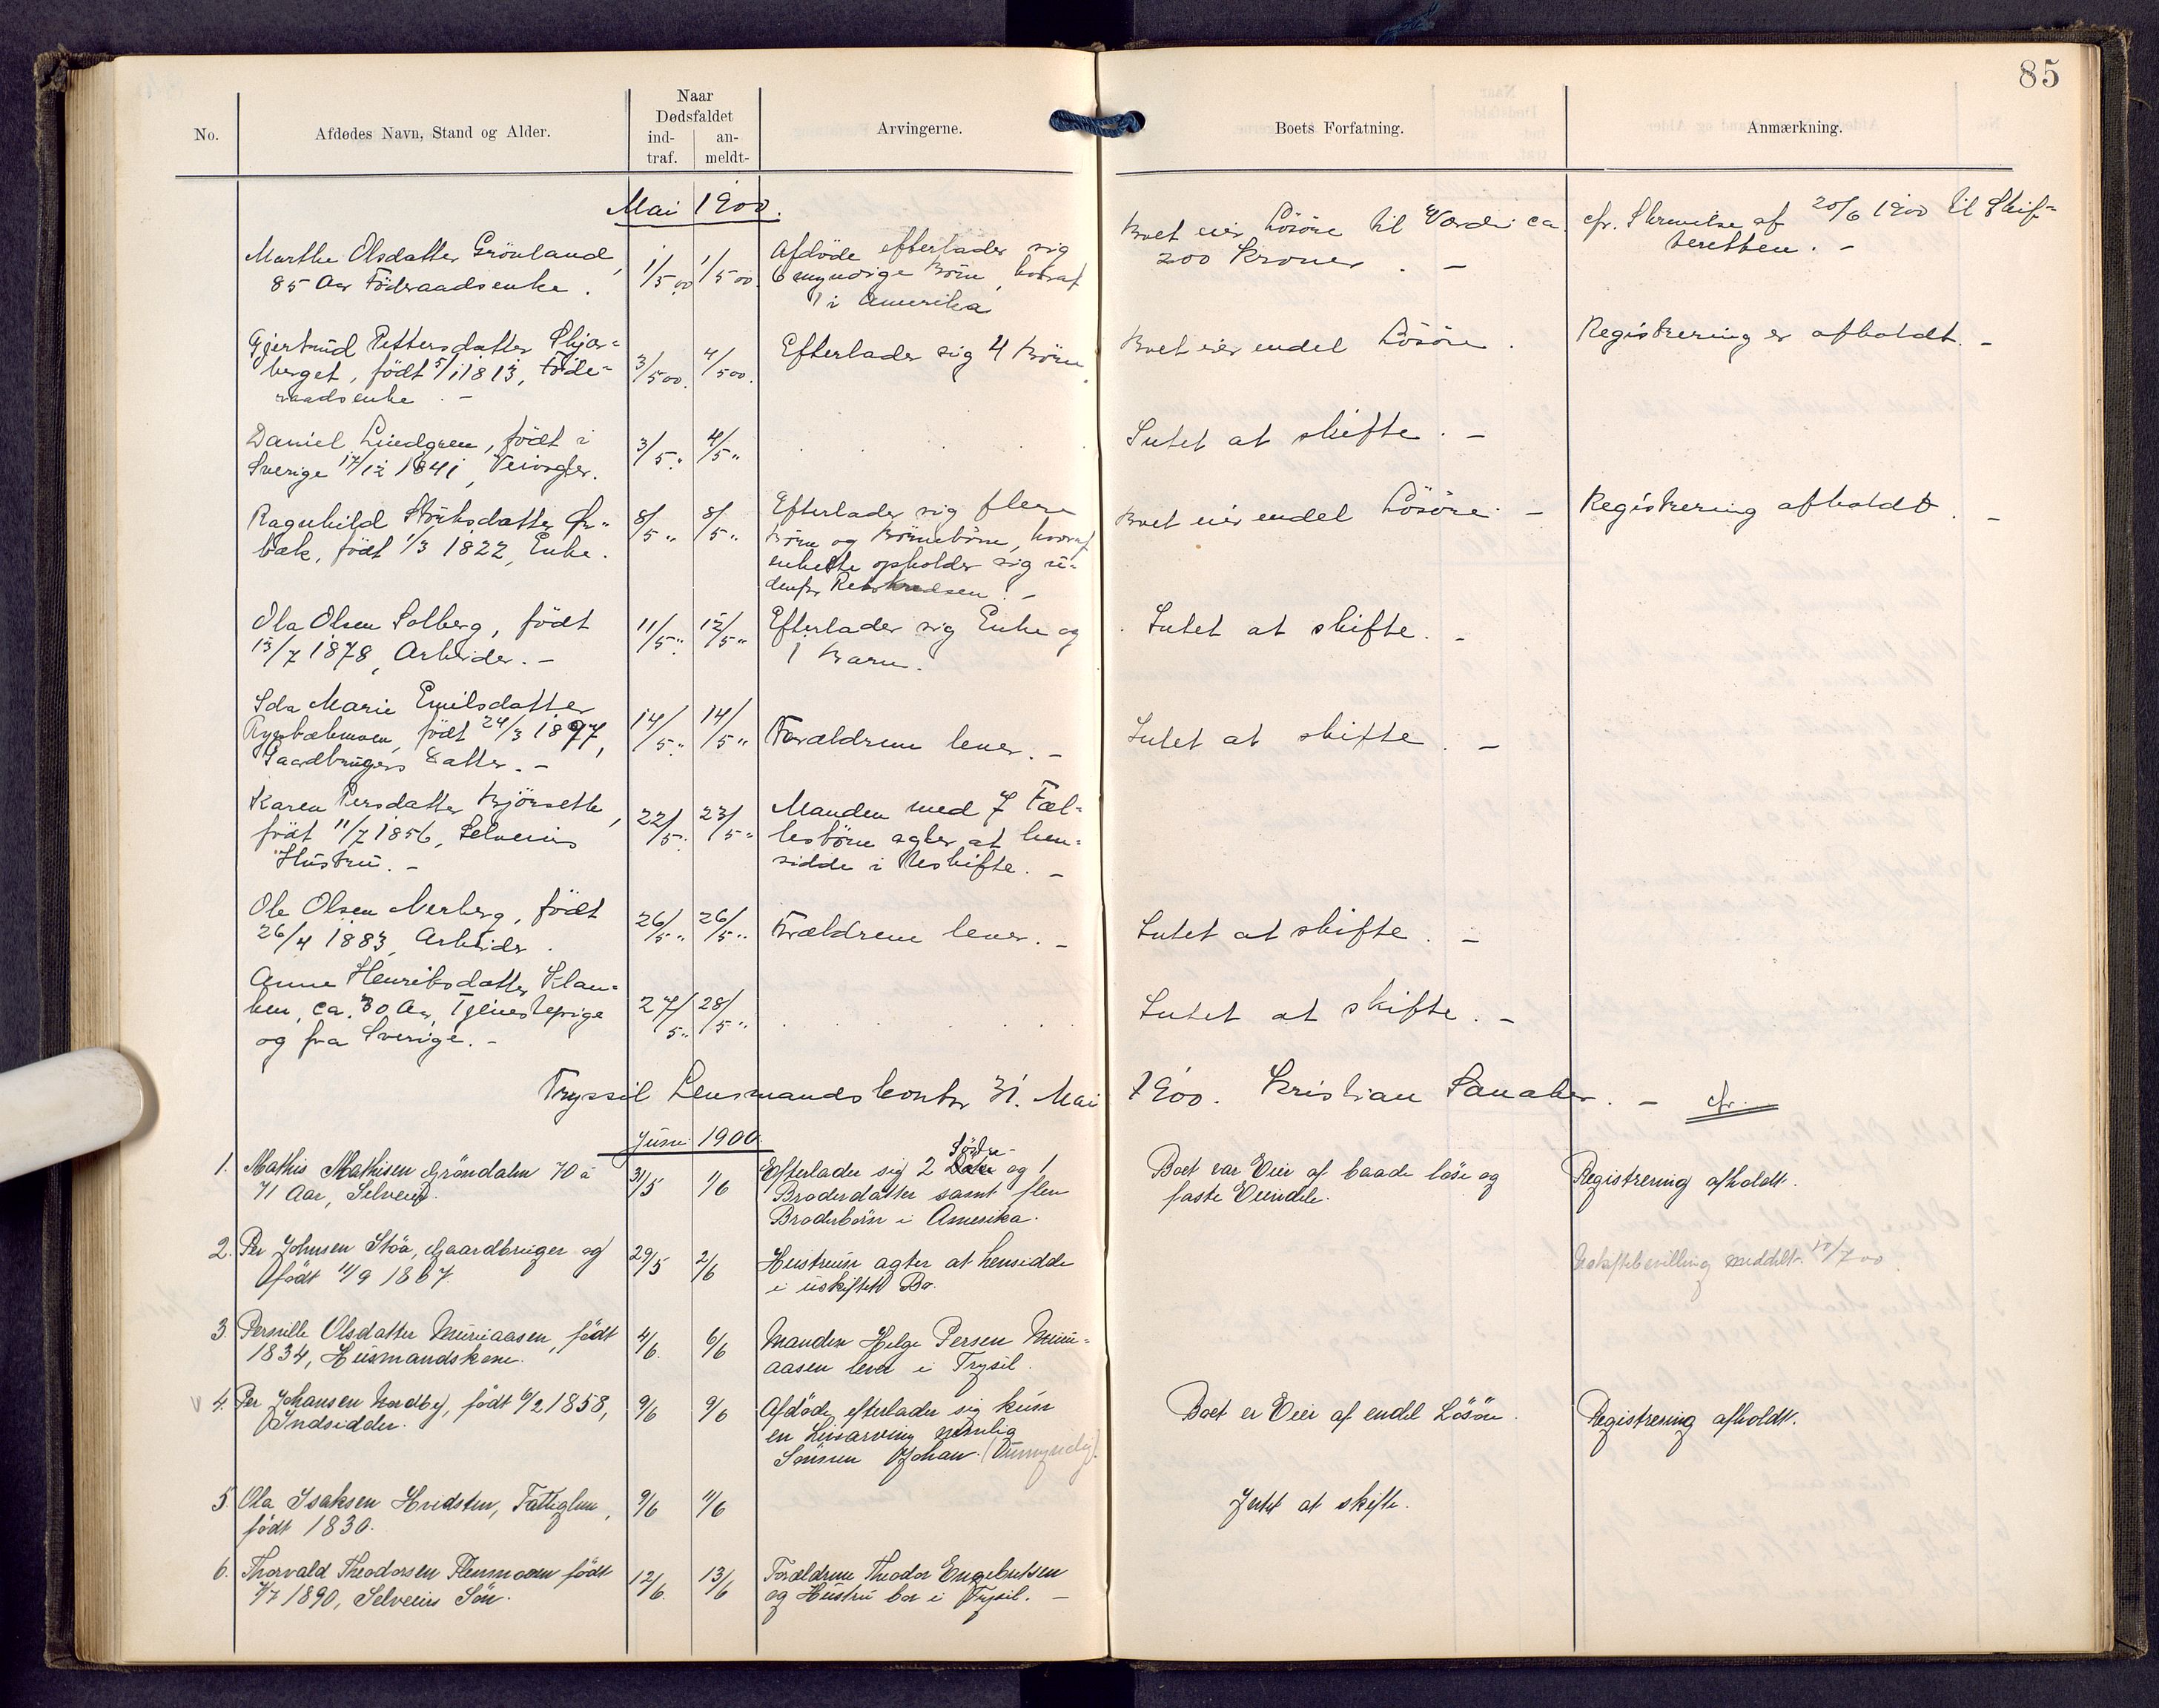 85
No.
Afdødes Navn, Stand og Alder.
Naar
Dødsfaldet
ind-
traf.
an-
meldt-
Arvingerne.
Boets Forfatning.
Anmærkning.
Mai 1900.
Marthe Olsdatter Grönland,
85 Aar Föderaadsenke.
1/5 00
1/5 00.
Afdöde efterlader sig
6 myndige Börn, hvoraf
1 i Amerika
Boet eier Lösöre til Værdi ca.
200 Kroner. -
cfr. Skrivelse af 20/6 1900 til Skif-
teretten. -
Gjertrud Pettersdatter
berget, födt 5/1 1813, Föde-
raadsenke. -
3/5 00.
4/5 00.
Efterlader sig 4 Börn.
Boet eier endel Lösöre.
Registrering er afholdt. -
Daniel Lindgren, födt i
Sverige 17/12 1841,
3/5 "
4/5 "
Intet at skifte. -
Ragnhild Störksdatter Ör-
bæk, födt 1/3 1822, Enke.
8/5 "
8/5 "
Efterlader sig flere
Börn og Börnebörn, hvoraf
enkelte opholder sig u-
denfor Retskredsen. -
Boet eier endel Lösöre. -
Registrering afholdt. -
Ola Olsen Solberg, födt
13/7 1878, Arbeider. -
11/5 "
12/5 "
Efterlader sig Enke og
1 Barn.
Intet at skifte. -
Ida Marie Emilsdatter
födt 24/3 1897,
Gaardbrugers Datter. -
14/5 "
14/5 "
Forældrene lever. -
Intet at skifte. -
Karen Persdatter Björseth,
födt 11/7 1856, Selveiers
Hustru. -
22/5 "
23/5 "
Manden med 7 Fæl-
lesbörn agter at hen-
sidde i Uskifte. -
Ole Olsen Nerberg, födt
26/4 1883, Arbeider.
26/5 "
26/5 "
Forældrene lever. -
Intet at skifte. -
Anne Henriksdatter Klan-
ken, ca. 30 Aar, Tjenestepige
og fra Sverige. -
27/5 "
28/5 "
Intet at skifte. -
Tryssil Lensmandskontor 31. Mai 1900. Kristian Sanaker. - cfr.
Juni 1900.
1. Mathis Mathisen Gröndalen 70 à
71 Aar, Selveier.
31/5
1/6
Södre-
Efterlader sig 2 og 1
Broderdatter samt flere
Broderbörn i Amerika.
Boet var Eier af baade löse og
faste Eiendele.
Registrering afholdt.
2. Per Johnsen Stöa, Gaardbruger og
födt 11/9 1867.
29/5
2/6
Hustruen agter at hensidde
i uskiftet Bo.
Uskiftebevilling meddelt 17/7 00
3. Pernille Olsdatter Muruaasen, födt
1834, Husmandskone.
4/6
6/6
Manden Helge Persen Muru-
aasen lever i Trysil.
4. Per Johansen Nordby, födt 6/2 1858,
Indsidder.
9/6
9/6
Afdöde efterlader sig kun
en Livsarving nemlig
Sönnen Johan. (Umyndig).
Boet er Eier af endel Lösöre.
Registrering afholdt.
5. Ola Isaksen Hvidsten, Fattiglem,
födt 1830.
9/6
11/6
Intet at skifte.
6. Thorvald Theodorsen Flenmoen födt
4/7 1890, Selveiers Sön.
12/6
13/6
Forældrene Theodor Engebretsen
og Hustru bor i Trysil. -